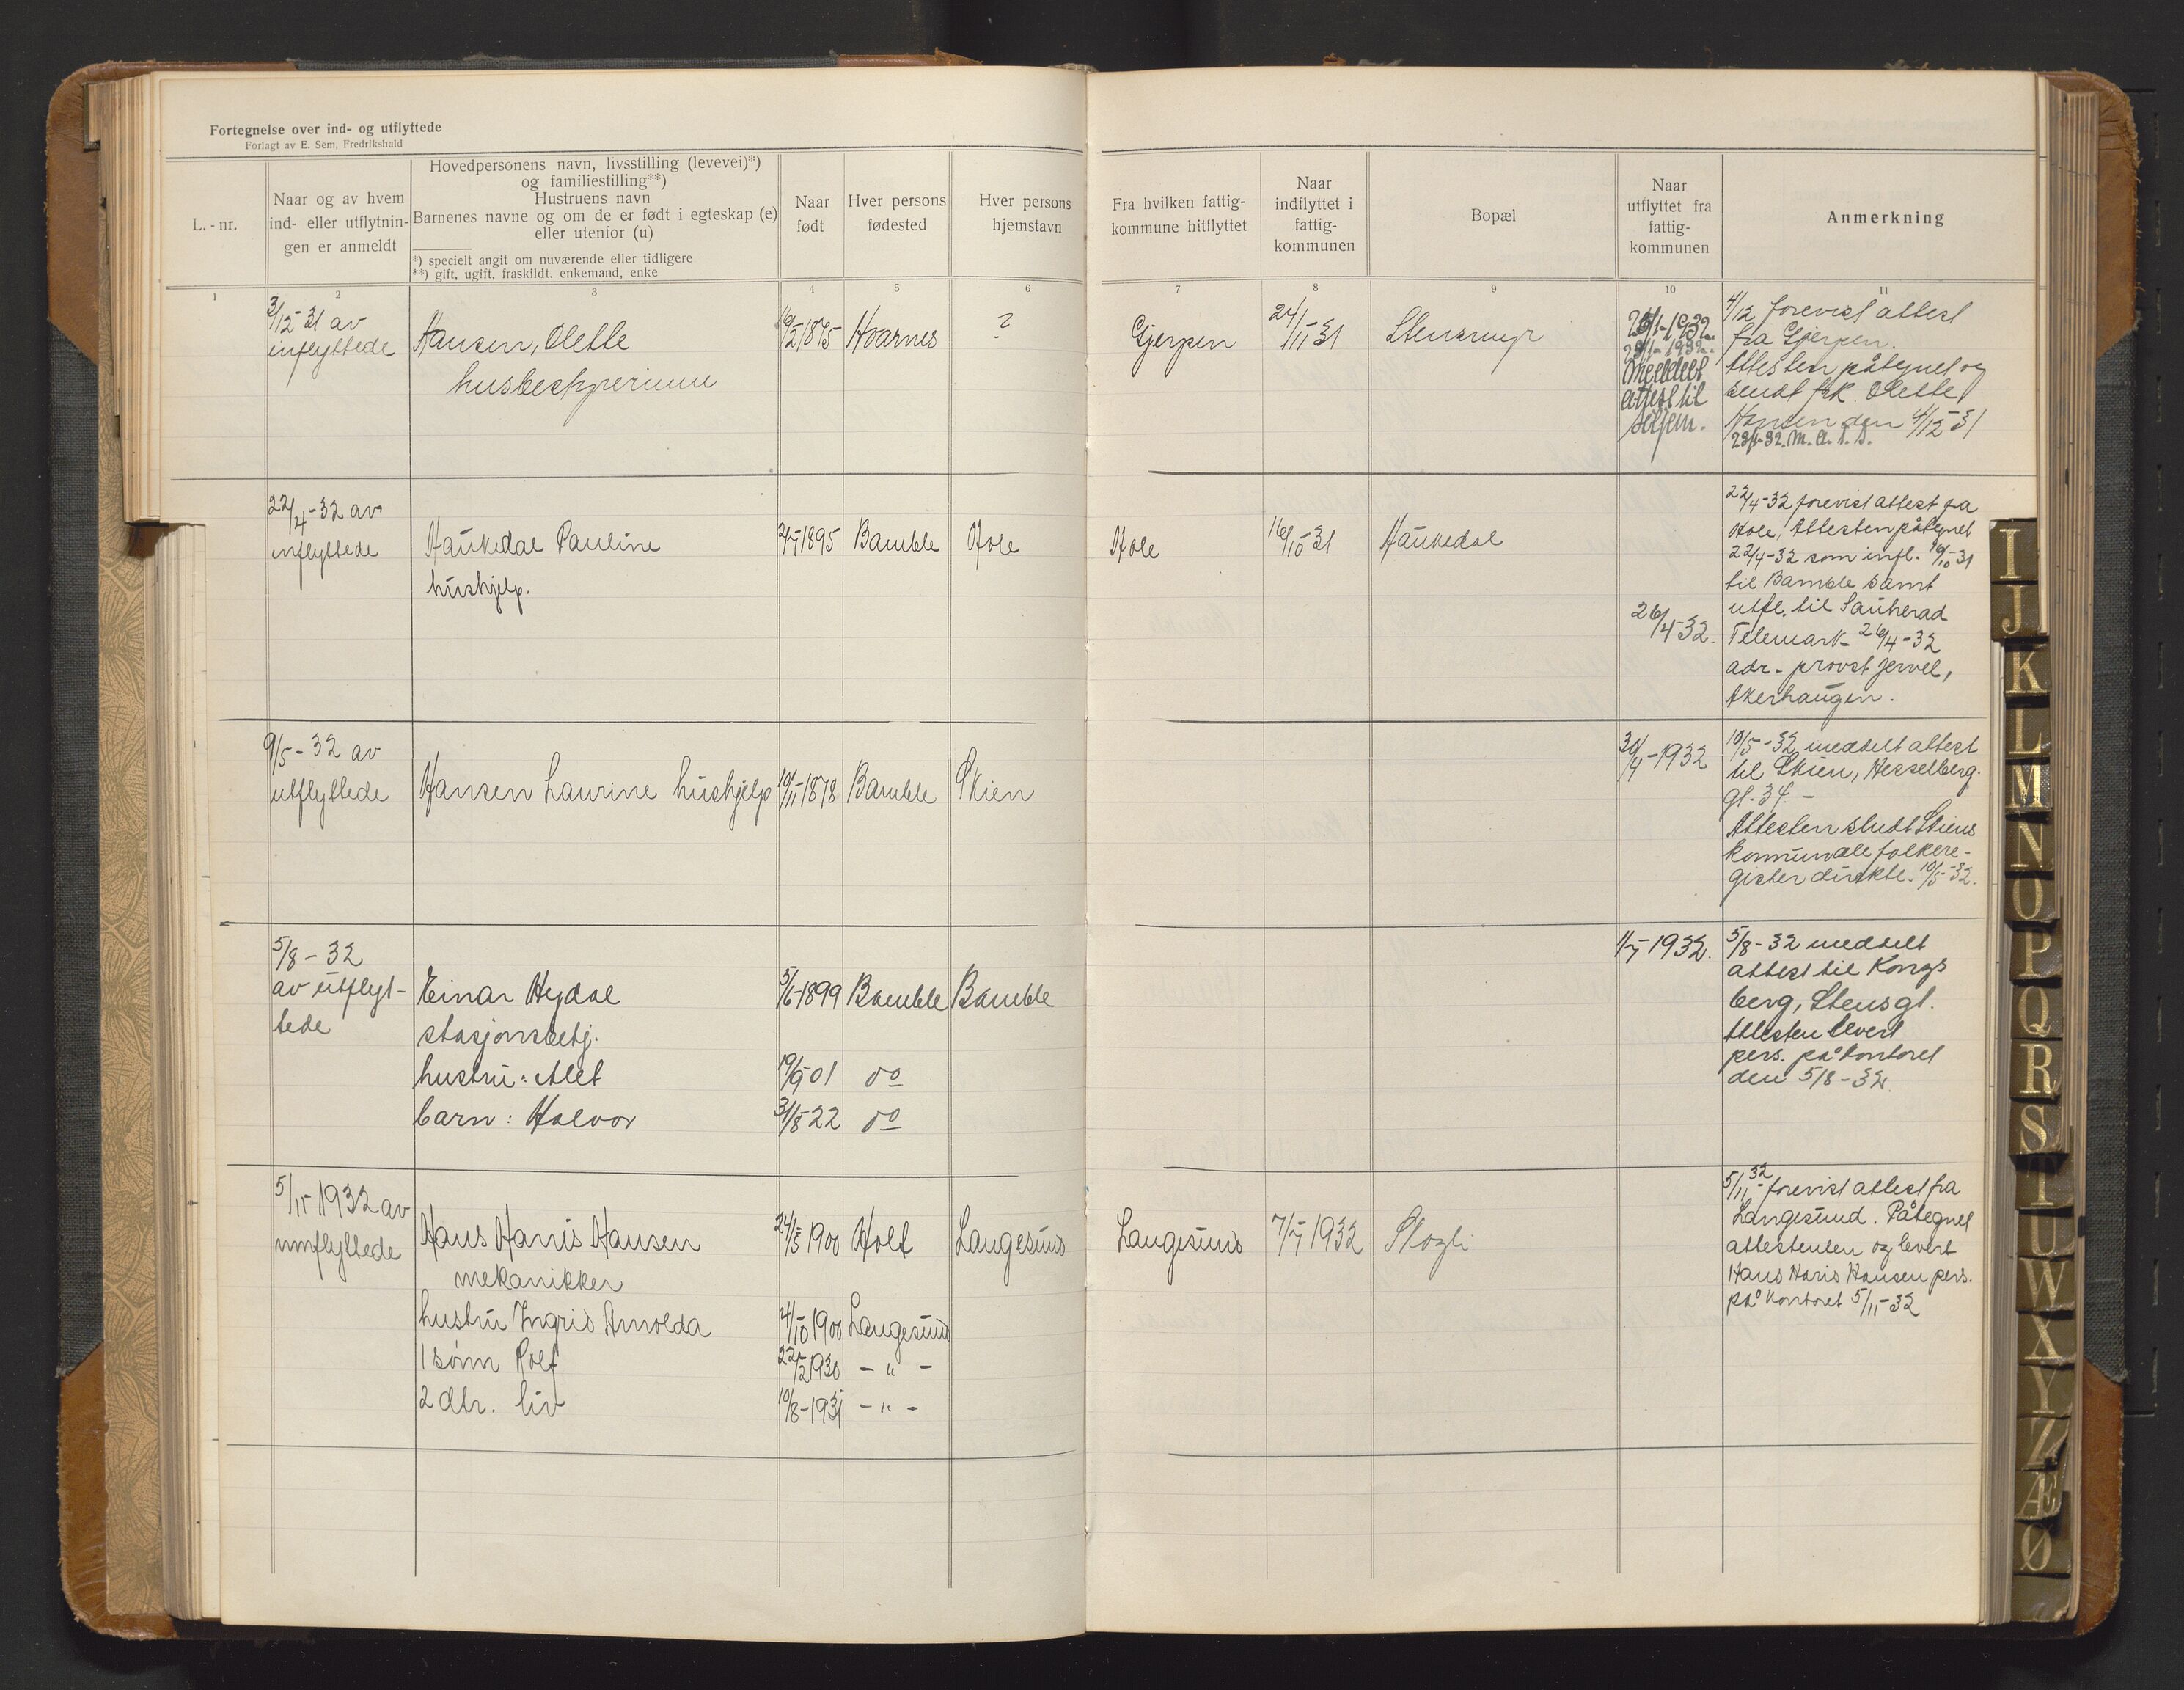 Fortegnelse over ind- og utflyttede
Forlagt av E. Sem, Fredrikshald
L.-nr.
Naar og av hvem
ind- eller utflytnin-
gen er anmeldt
Hovedpersonens navn, livsstilling (levevei)*)
og familiestilling**)
Hustruens navn
Barnenes navne og om de er født i egteskap (e)
eller utenfor (u)
*) specielt angit om nuværende eller tidligere
**) gift, ugift, fraskildt. enkemand, enke
Naar
født
Hver persons
fødested
Hver persons
hjemstavn
Fra hvilken fattig-
kommune hitflyttet
Naar
indflyttet i
fattig-
kommunen
Bopæl
Naar
utflyttet fra
fattig-
kommunen
Anmerkning
1 2 3 4 5 6 7 8 9 10 11
3/12-31 av
inflyttede
Hansen, Olette
husbestyrerinne
1875
Hvarnes
?
Gjerpen
24/11-31
Stensmyr
23/1-1932
Meddelt
attest til
4/12 forevist attest
fra Gjerpen.
Attesten påtegnet og
sendt frk. Olette
Hansen den 4/12-31
22/4-32 av
inflyttede
Haukedal Pauline
hushjelp.
1895
Bamble
Hole
Hole
16/10-31
Haukedal
26/4-32.
22/4-32 forevist attest fra
Hole, Attesten påtegnet
22/4-32 som infl. 16/10-31
til Bamble samt
utfl. til Sauherad
Telemark 26/4-32
adr. provst Jervel,
Akerhaugen.
9/5-32 av
utflyttede
Hansen Laurine hushjelp
10/11-1878
Bamble
Skien
30/4-1932
10/5-32 meddelt attest
til Skien, Hesselberg.
gt. 34.-
Attesten sendt Skiens
kommunale folkere-
gister direkte. 10/5-32.
5/8-32
av utflyt-
tede
Einar Hydal
stasjonsbetj.
5/6-1899
Bamble
Bamble
hustru: Alet
19/9 01
do
barn: Halvor
31/8 22
do
1/7-1932.
5/8-32 meddelt
attest til Kongs
berg, Stensgt.
Attesten levert
pers. på kontoret
den 5/8-32.
5/11-1932 av
innflyttede
Hans Haris Hansen
mekanikker
24/5 1900
Holt
Langesund
Langesund
7/7 1932
Skogli
hustru Ingrid Arnolda
24/10 1900
Langesund
1 sønn Rolf
22/2 1930
- " -
2 dtr. Liv
10/8-1931
- " -
5/11-32 forevist attest fra
Langesund. Påtegnet
attesten og levert
Hans Haris Hansen pers.
på kontoret 5/11-32
I
J
K
L
M
N
O
P
Q
R
S
T
U
W
X
Y
Z
Æ
Ø